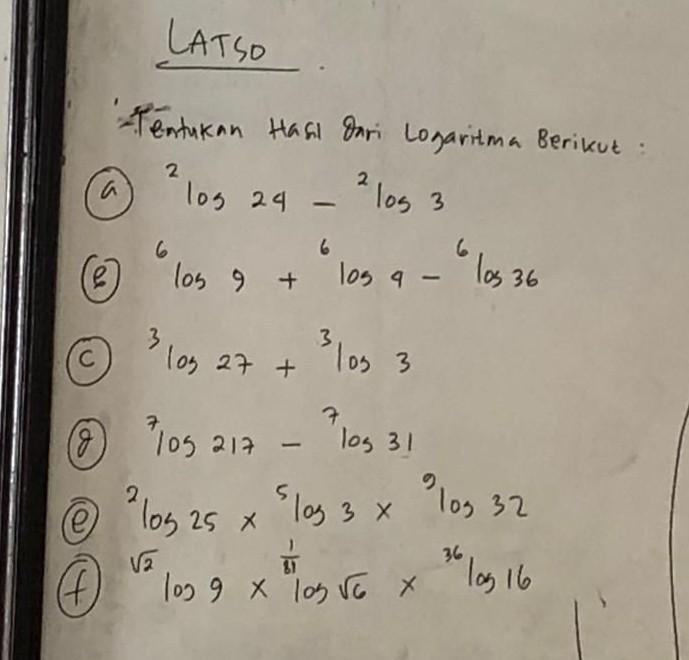 LATSO
Tentukan Hasil dari Logaritma Berikut :
(a) ²log 24 − ²log 3
(B) ⁶log 9 + ⁶log 4 − ⁶log 36
(C) ³log 27 + ³log 3
(d) ⁷log 217 − ⁷log 31
(e) ²log 25 × ⁵log 3 × ⁹log 32
(f) √2 log 9 × 1/81 log √6 × ³⁶log 16